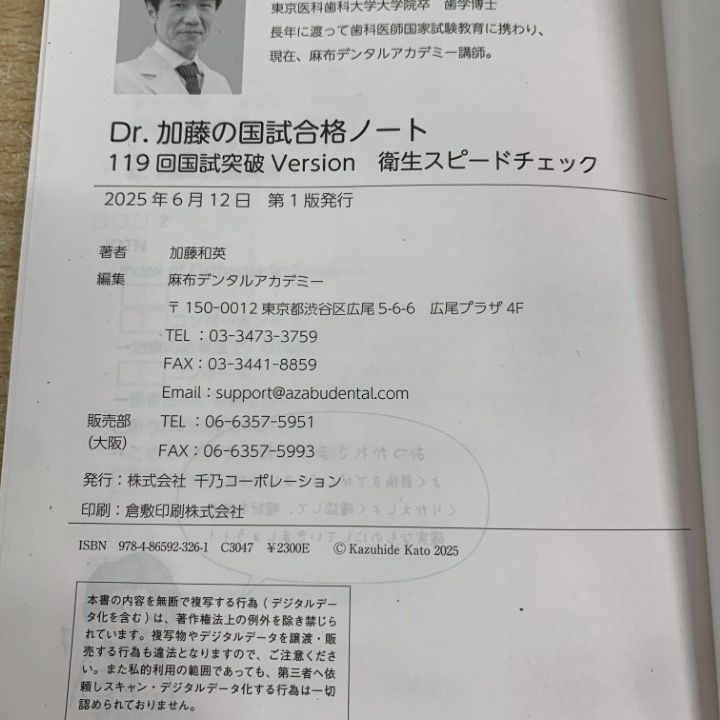 東京医科歯科大学大学院卒 歯学博士
長年に渡って歯科医師国家試験教育に携わり、
現在、麻布デンタルアカデミー講師。
Dr. 加藤の国試合格ノート
119 回国試突破 Version 衛生スピードチェック
2025 年 6 月 12 日 第 1 版発行
著者 加藤和英
編集 麻布デンタルアカデミー
〒 150-0012 東京都渋谷区広尾 5-6-6 広尾プラザ 4F
TEL ：03-3473-3759
FAX：03-3441-8859
Email：support@azabudental.com
販売部 TEL ：06-6357-5951
(大阪) FAX：06-6357-5993
発行：株式会社 千乃コーポレーション
印刷：倉敷印刷株式会社
ISBN 978-4-86592-326-1 C3047 ￥2300E © Kazuhide Kato 2025
本書の内容を無断で複写する行為 ( デジタルデー
タ化を含む ) は、著作権法上の例外を除き禁じら
れています。複写物やデジタルデータを譲渡・販
売する行為も違法となりますので、ご注意くださ
い。また私的利用の範囲であっても、第三者へ依
頼しスキャン・デジタルデータ化する行為は一切
認められておりません。